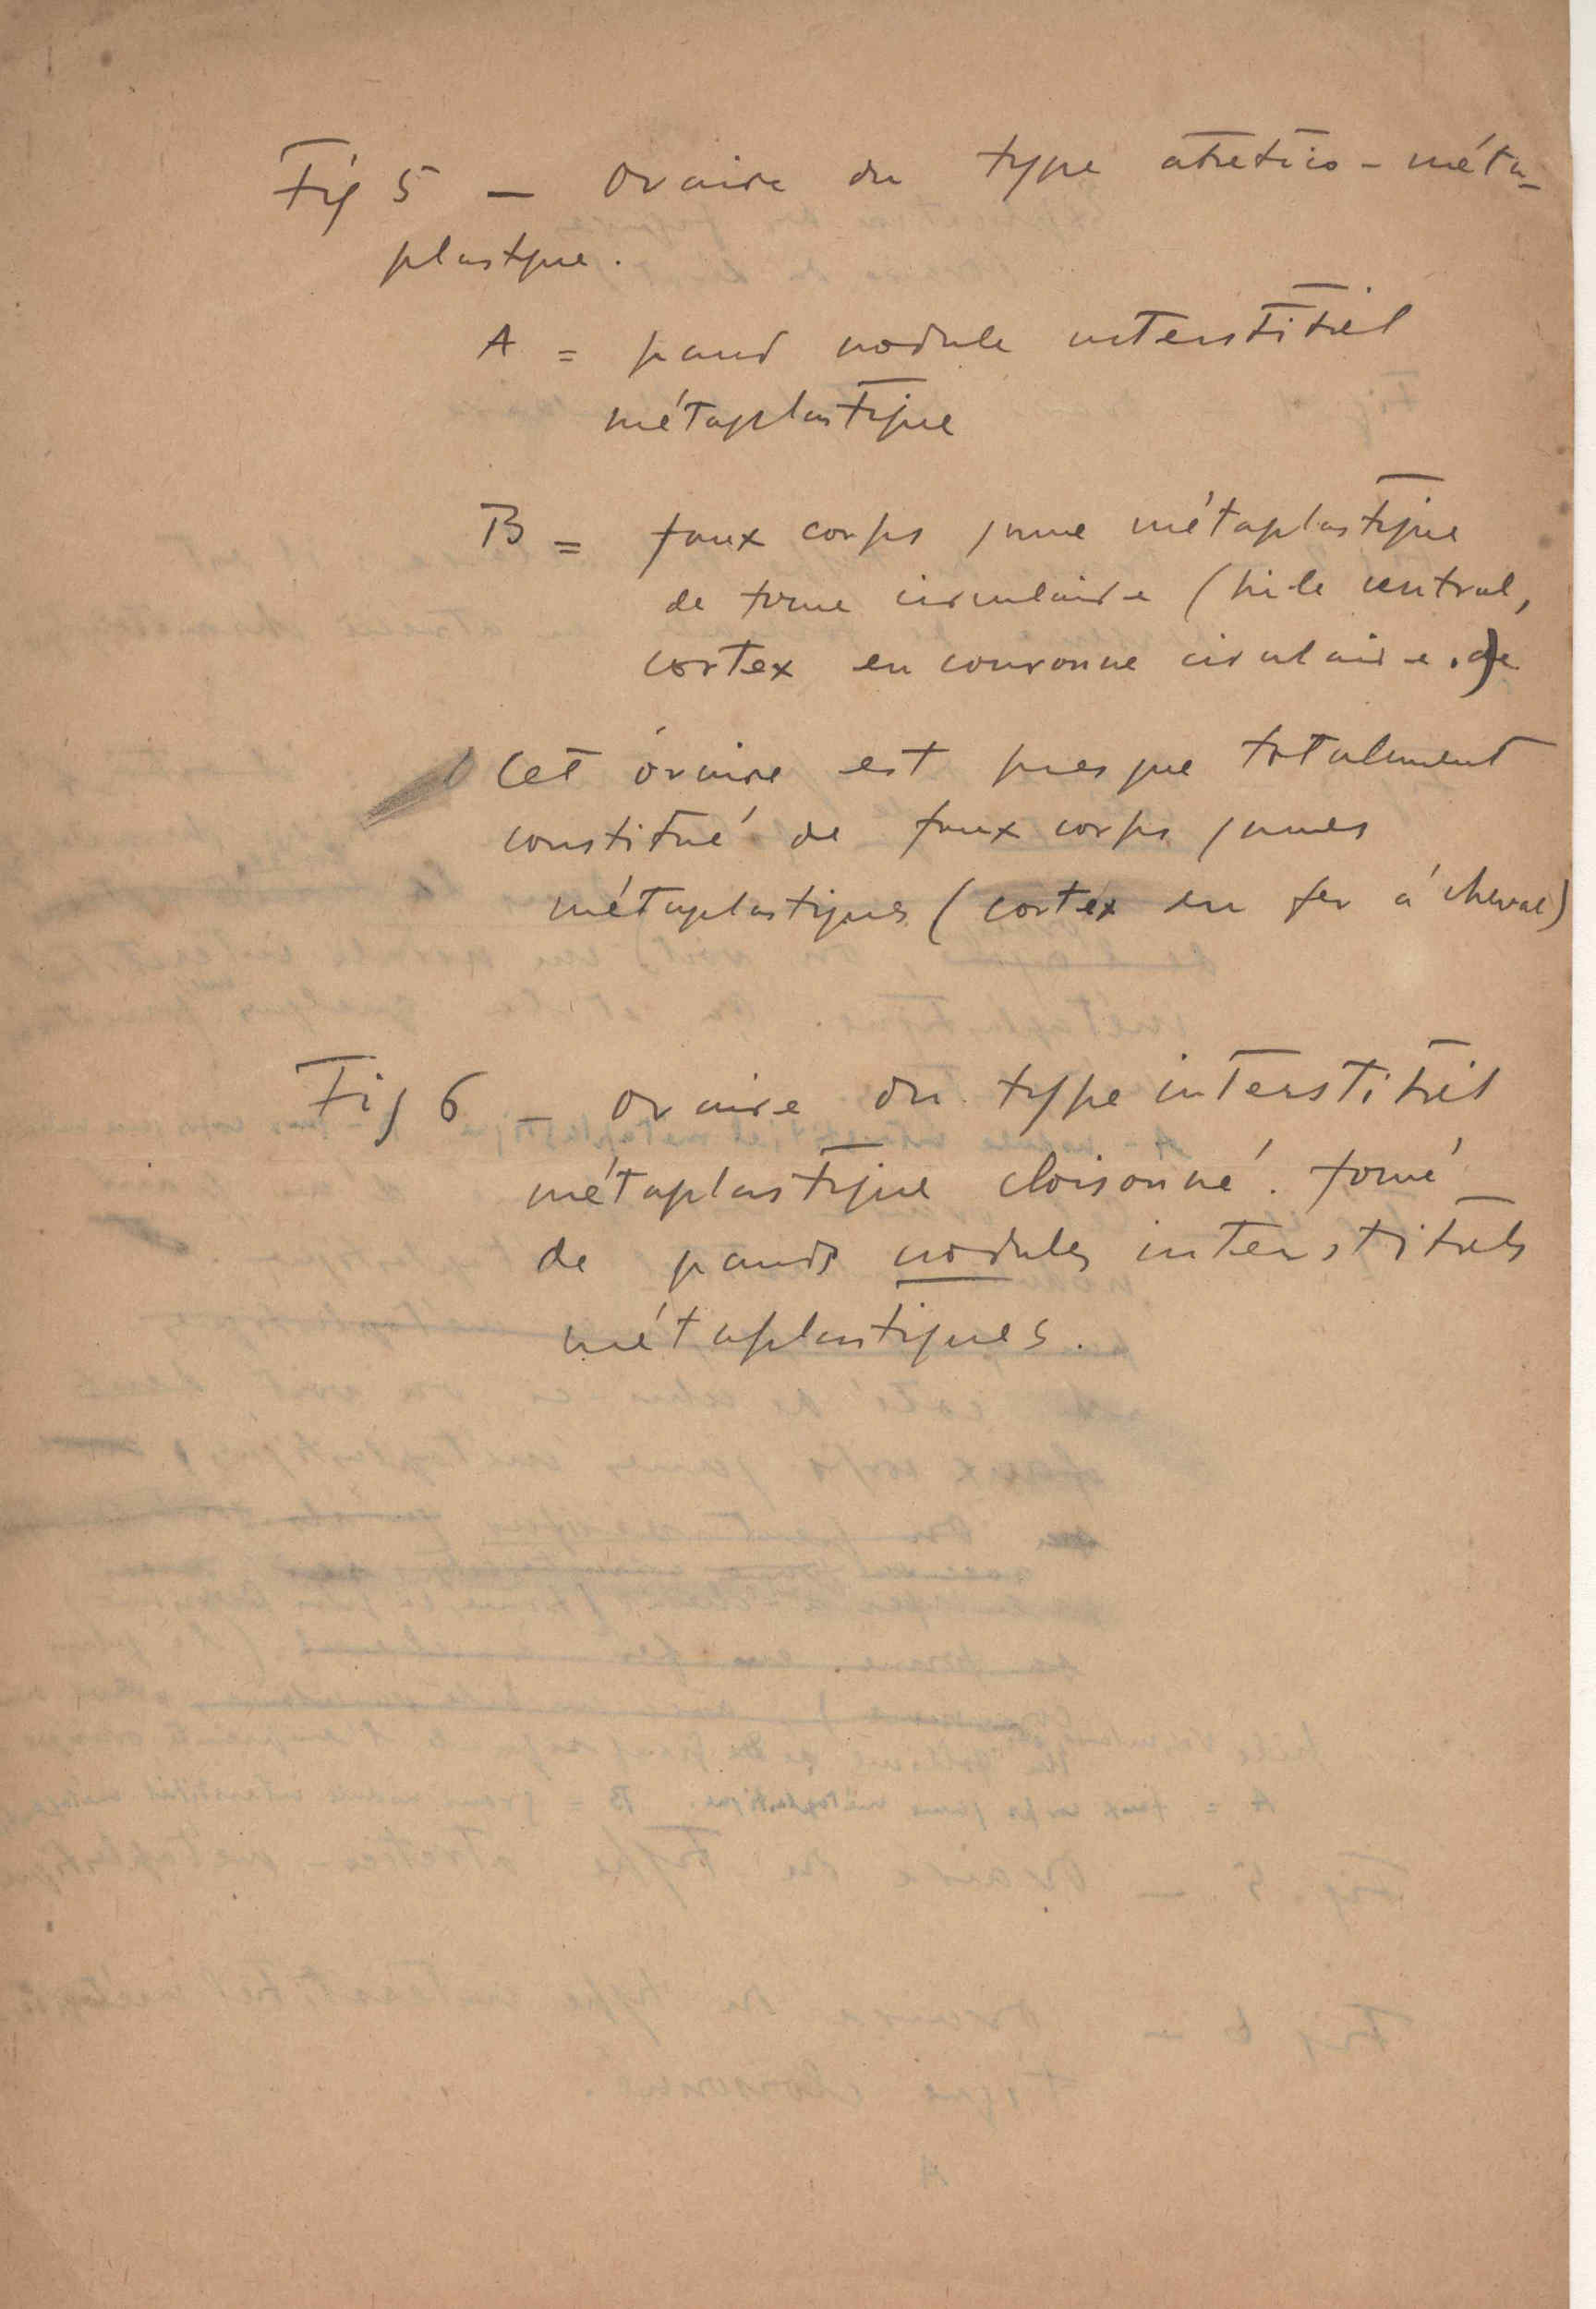 Fig 5 — Ovaire du type atretico-méta-
plastique.
A = grand nodule interstitiel
métaplastique
B = faux corps jaune métaplastique
de forme circulaire (hile central,
cortex en couronne circulaire.)
Cet ovaire est presque totalement
constitué de faux corps jaunes
métaplastiques (cortex en fer à cheval)
Fig 6 – Ovaire du type interstitiel
métaplastique cloisonné. formé
de grands nodules interstitiels
métaplastiques.